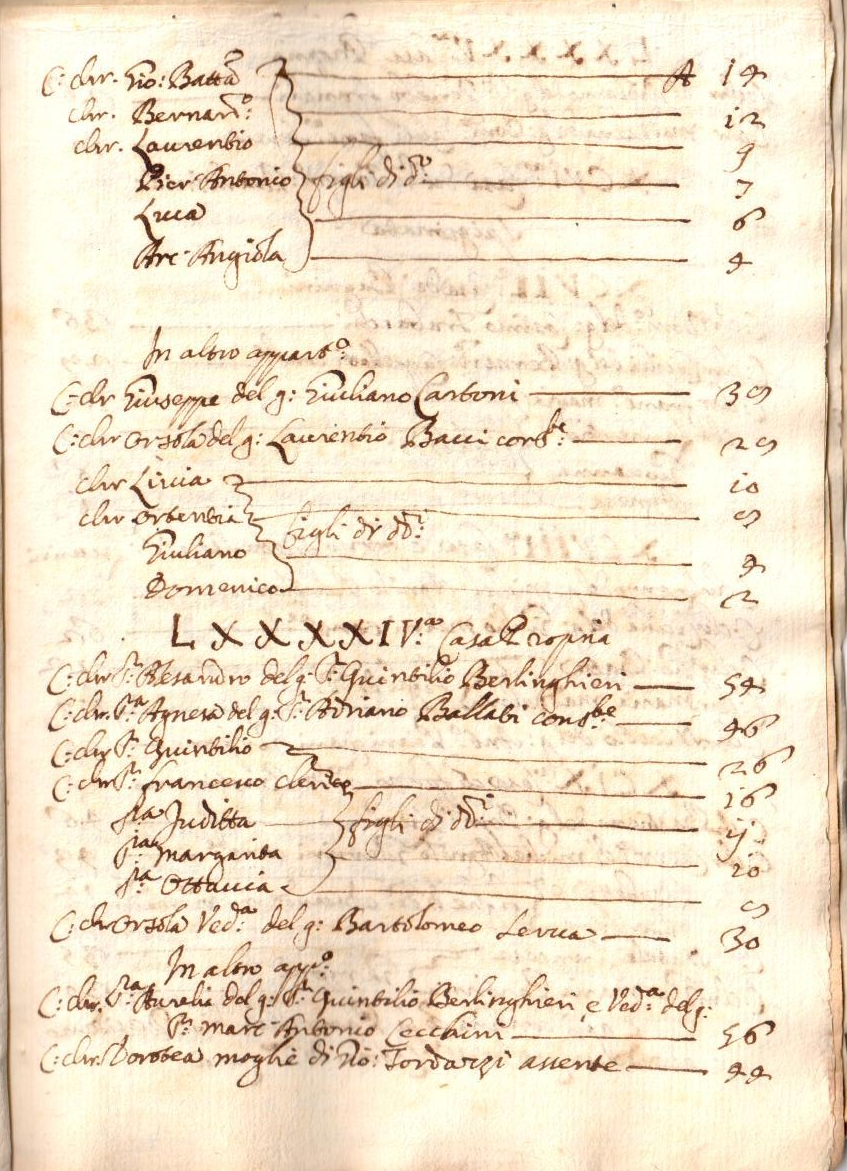 C: chr. Gio: Batta A 14
chr. Bernar.o 12
chr. Laurentio 9
Pier Antonio figli di d.o 7
Luca 6
Arc' Angiola 4
In altro appart.o
C: chr Giuseppe del q: Giuliano Cartoni 38
C: chr Orsola del q: Laurentio Bacci cons.te: 28
chr Livia 10
chr Ortentia figli di dd.i: 8
Giuliano 4
Domenico 2
LXXXXIV.a Casa Propria
C: chr S.r Alesandro del q: S.r Quintilio Berlinghieri 54
C: chr. S.ra Agnesa del q: S.r Adriano Ballati cons.te 46
C: chr S.r Quintilio 26
C: chr S.r francesco clerico 16
S.ra Juditta figli di dd.i: 11
S.ra Margarita 10
S.ra Ottavia 8
C: chr Orsola Ved.a del q: Bartolomeo 30
In altro app.o:
C: chr. S.ra Aurelia del q: S.r Quintilio Berlinghieri, e Ved.a del q:
S.r Marc' Antonio Cecchini 56
C: chr. Dorotea moglie di Gio: assente 44